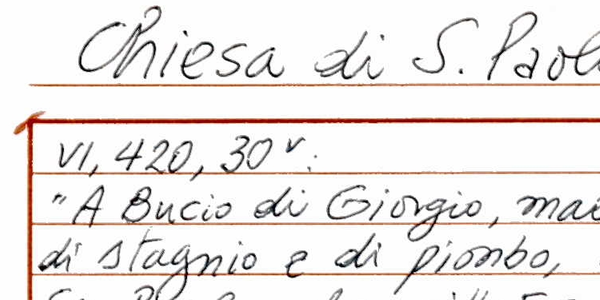 Chiesa di S. Paol
VI, 420, 30 v.
"A Bucio di Giorgio, mae
di stagnio e di piombo,